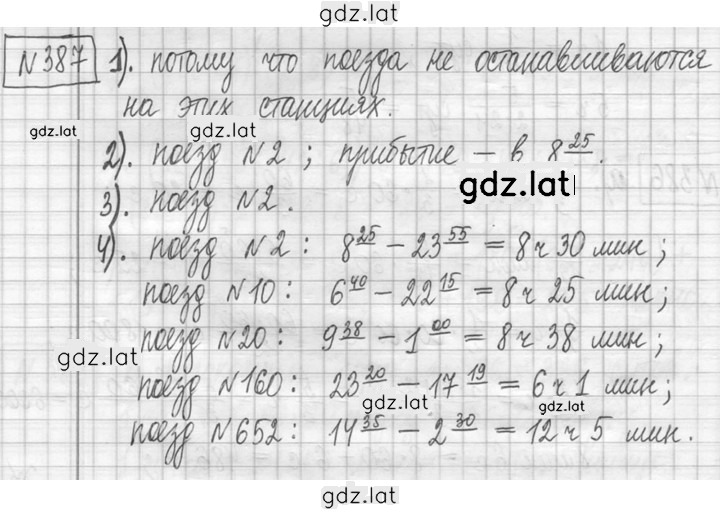 gdz.lat
№387 1). потому что поезда не останавливаются
на этих станциях.
gdz.lat gdz.lat
2). поезд №2 ; прибытие – в 8 25.
gdz.lat
3). поезд №2.
4). поезд №2 : 8 25 – 23 55 = 8 ч 30 мин ;
поезд №10 : 6 40 – 22 15 = 8 ч 25 мин ;
поезд №20 : 9 38 – 1 00 = 8 ч 38 мин ;
gdz.lat
поезд №160 : 23 20 – 17 19 = 6 ч 1 мин ;
gdz.lat gdz.lat
поезд №652 : 14 35 – 2 30 = 12 ч 5 мин.
gdz.lat